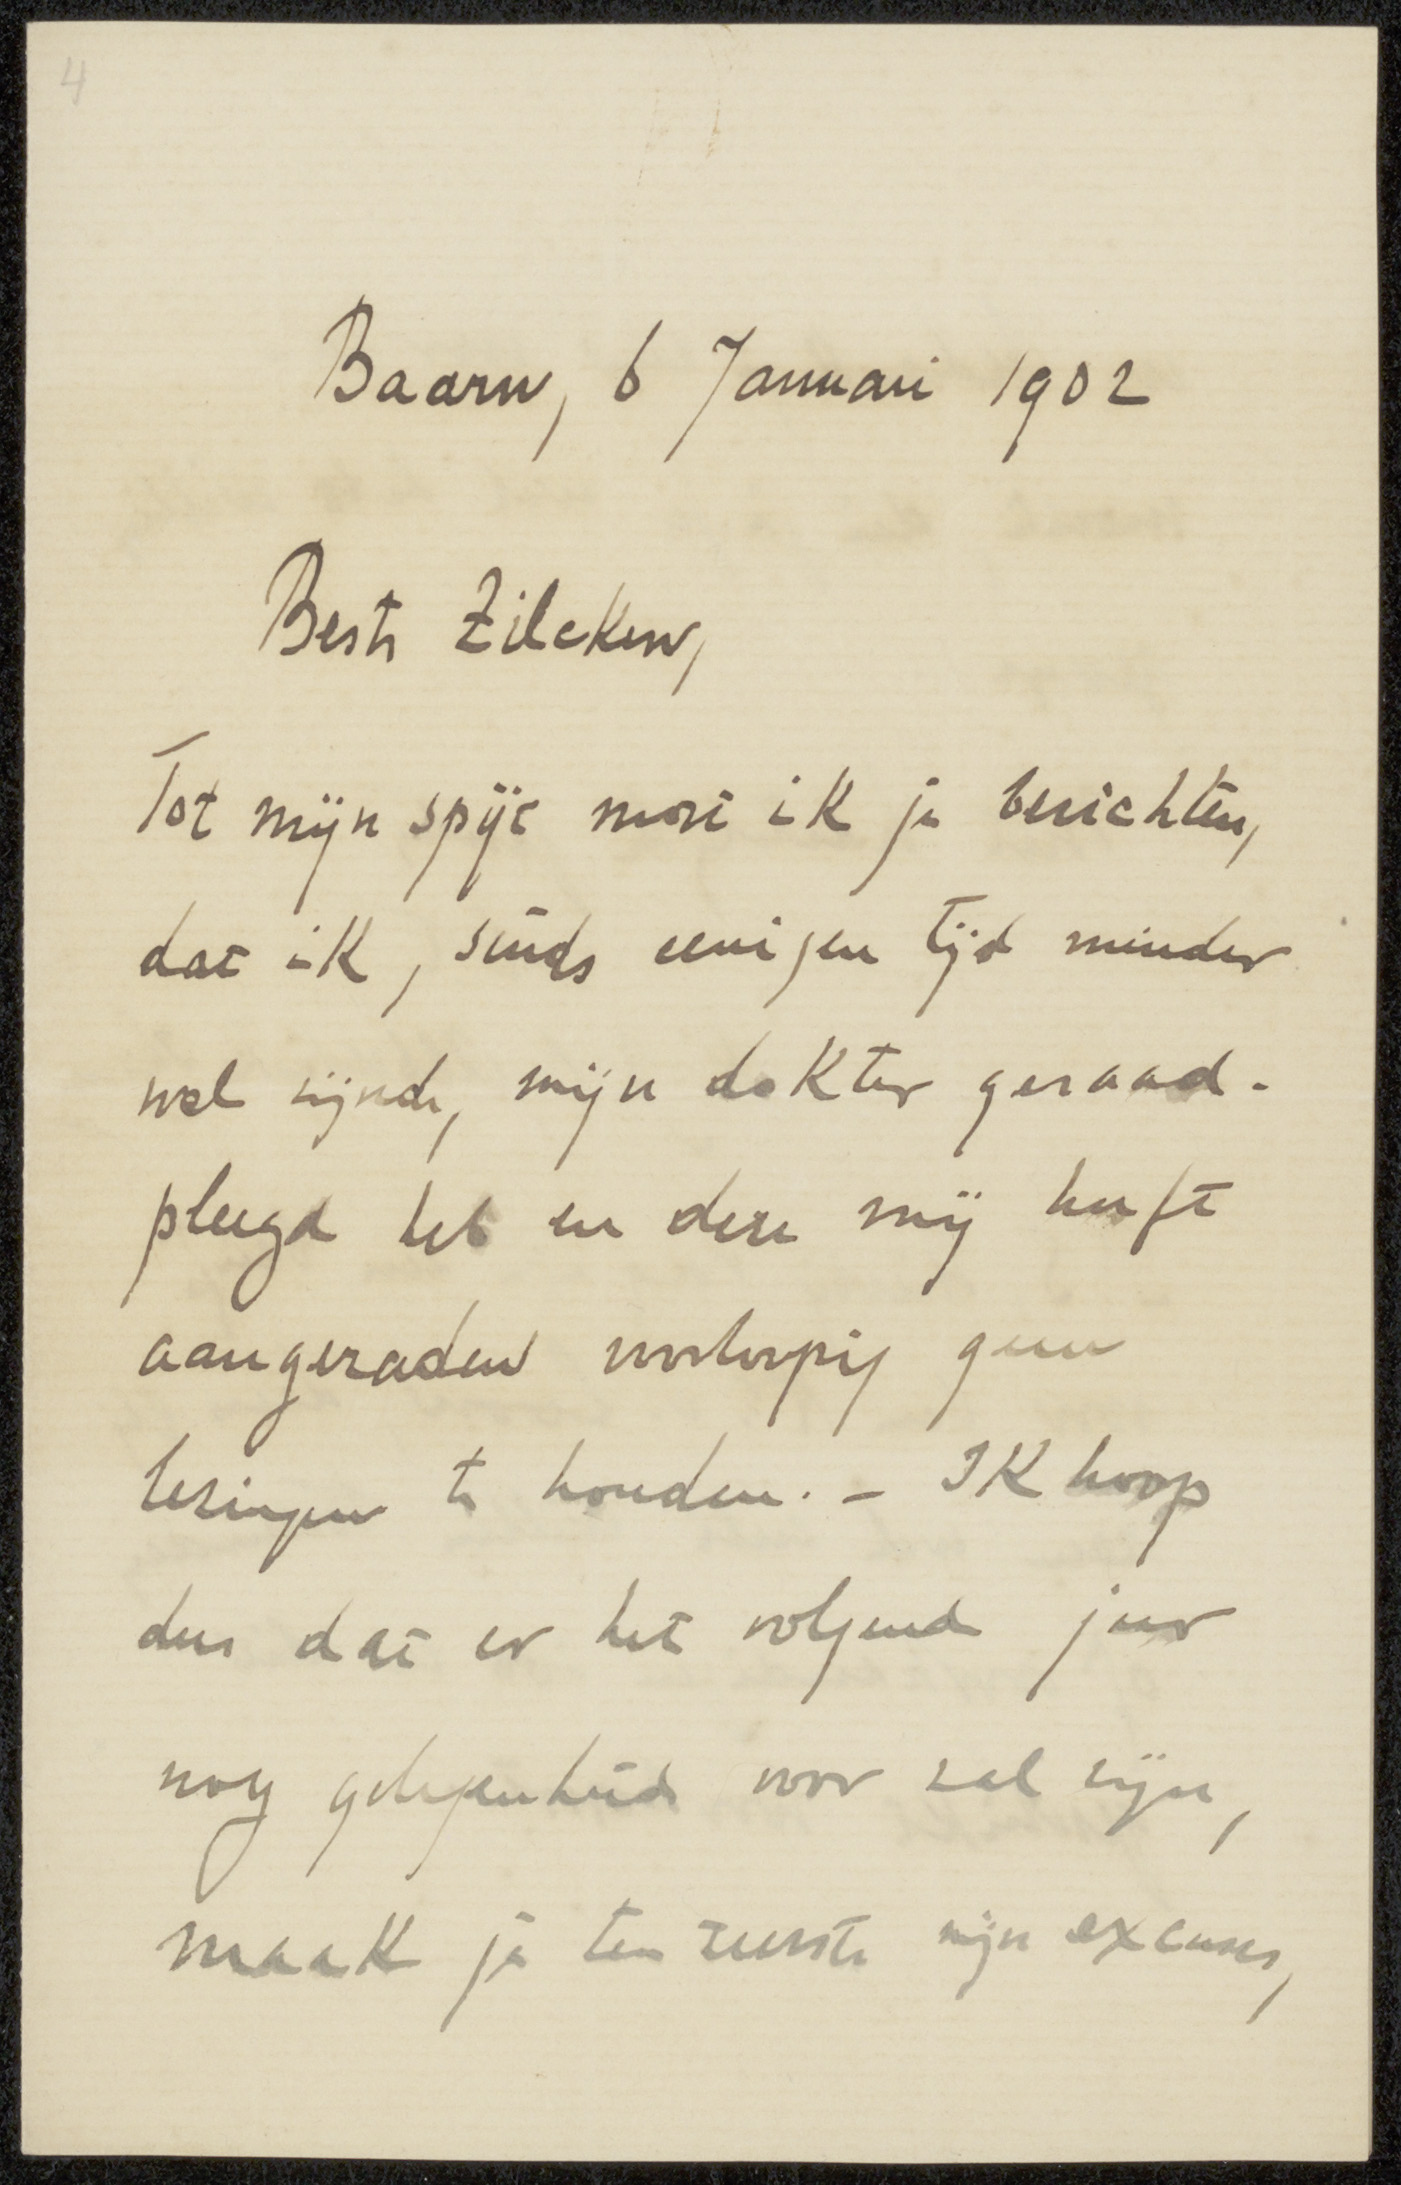 4
Baarn, 6 Januari 1902
Beste Zilcken,
Tot mijn spijt moet ik je berichten,
dat ik, sinds eenigen tijd minder
wel zijnde, mijn dokter geraad-
pleegd heb en deze mij heeft
aangeraden voorloopig geen
lezingen te houden. - Ik hoop
dus dat er het volgend jaar
nog gelegenheid voor zal zijn,
maak je ten zeerste mijn excuses,